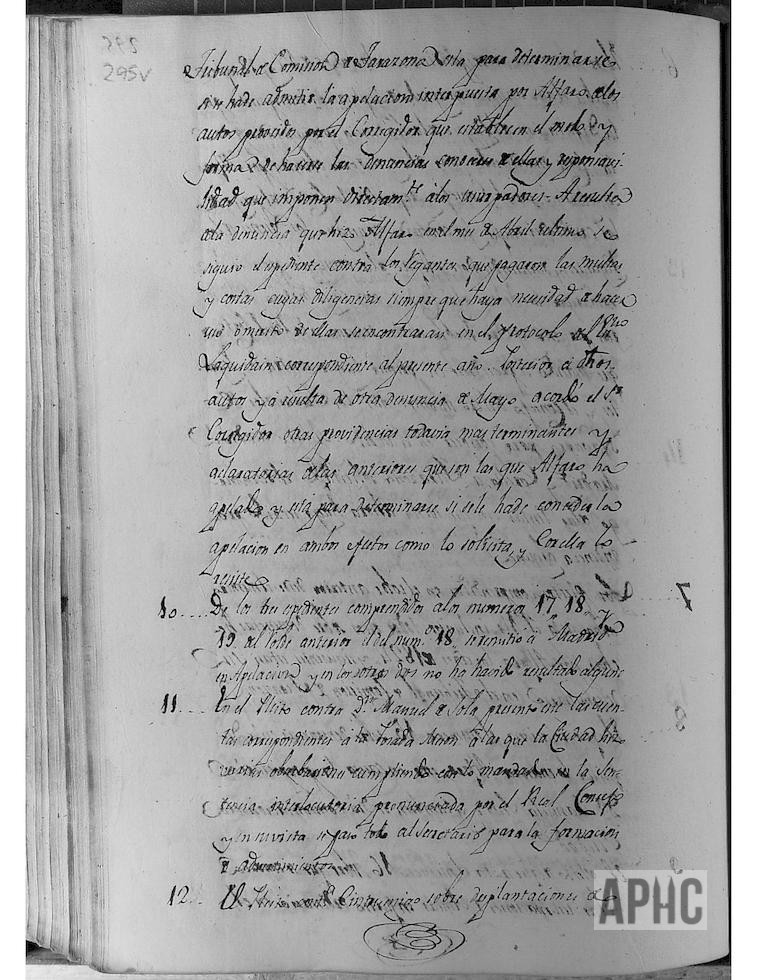 295
295v
Tribunal de Cominos de Tarazona esta para determinarse
si se ha de admitir la apelacion interpuesta por Alfaro de los
autos probeidos por el Corregidor que establecen el modo y
forma de hacerse las denuncias conocer de ellas y responsavi-
lidad que imponen directam.te a los usurpadores. A resulta
de la denuncia que hizo Alfaro en el mes de Abril ultimo se
siguio el espediente contra los Regantes que pagaron las multas
y costas cuyas diligencias siempre que haya necesidad de hacer
uso o merito de ellas se encontraran en el Protocolo del Ess.no
Laquidain correspondiente al presente año. Posterior a dhos
autos y a resulta de otra denuncia de Mayo acordó el S.r
Corregidor otras providencias todavia mas terminantes y
aclaratorias de las anteriores que son las que Alfaro ha
apelado y está para determinarse si se le ha de conceder la
apelacion en ambos efectos como lo solicita, y Corella lo
resiste
10.... De los tres espedientes comprendidos a los numeros 17, 18, y
19 del folio anterior el del num.o 18 se remitio a Madrid
en Apelacion y en los otros dos no ha havido resultado alguno
11.... En el Pleito contra D.n Manuel de Sola presentó este las cuen-
tas correspondientes a la que la Ciudad hizo
cumpliendo con lo mandado en la Sen-
tencia interlocutoria pronunciada por el Real Consejo
y en su vista se pasó todo al Secretario para la formacion
de advertimientos
12... El Pleito con Cintruenigo sobre desplantaciones de
APHC